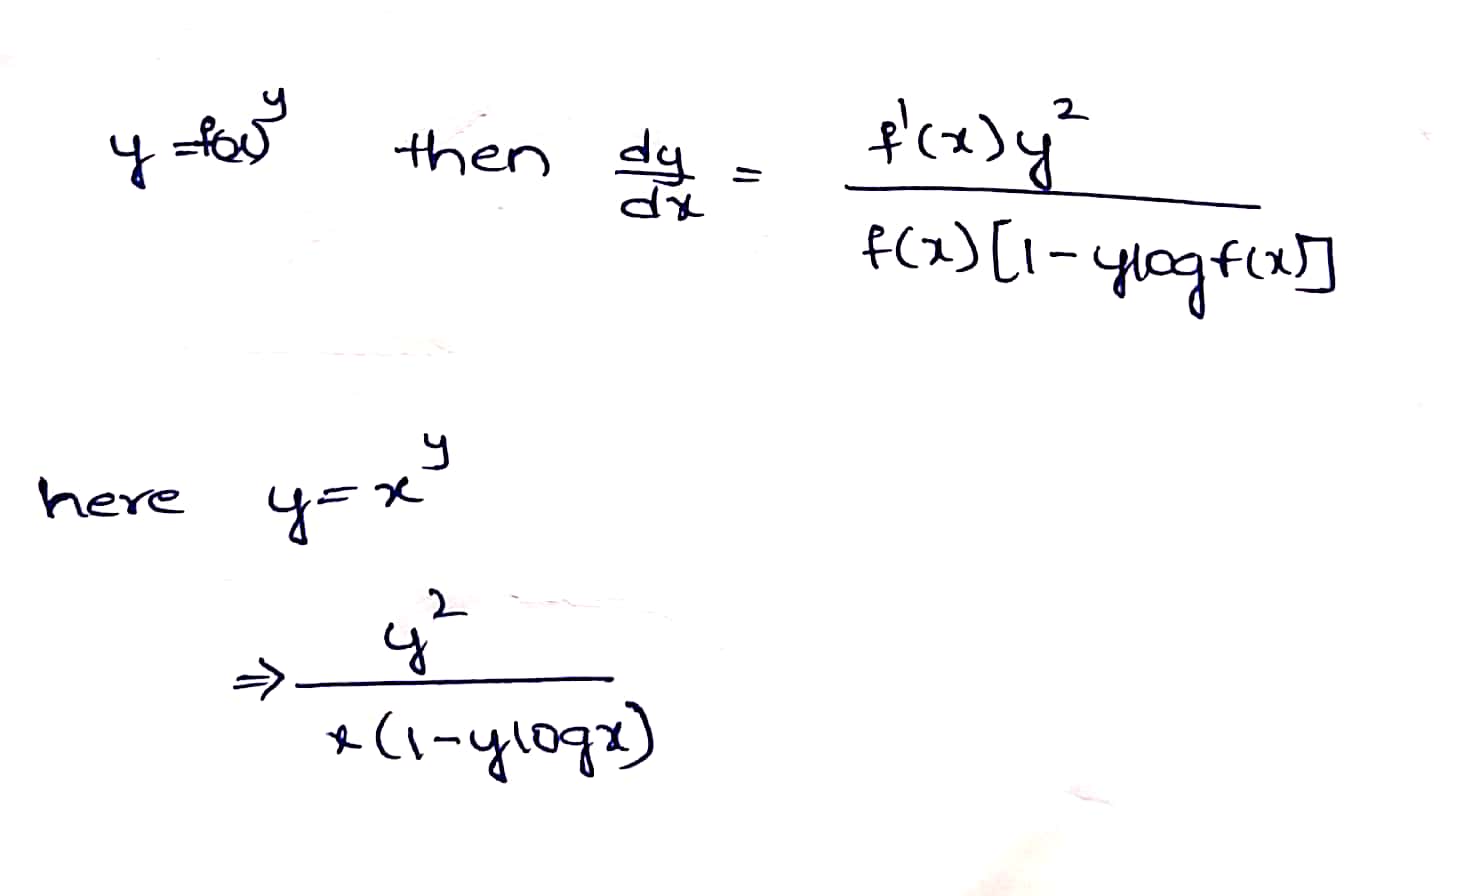 y = f(x)^y then dy/dx = f'(x)y²/f(x)[1-ylogf(x)]
here y = x^y
⇒ y²/x(1-ylogx)